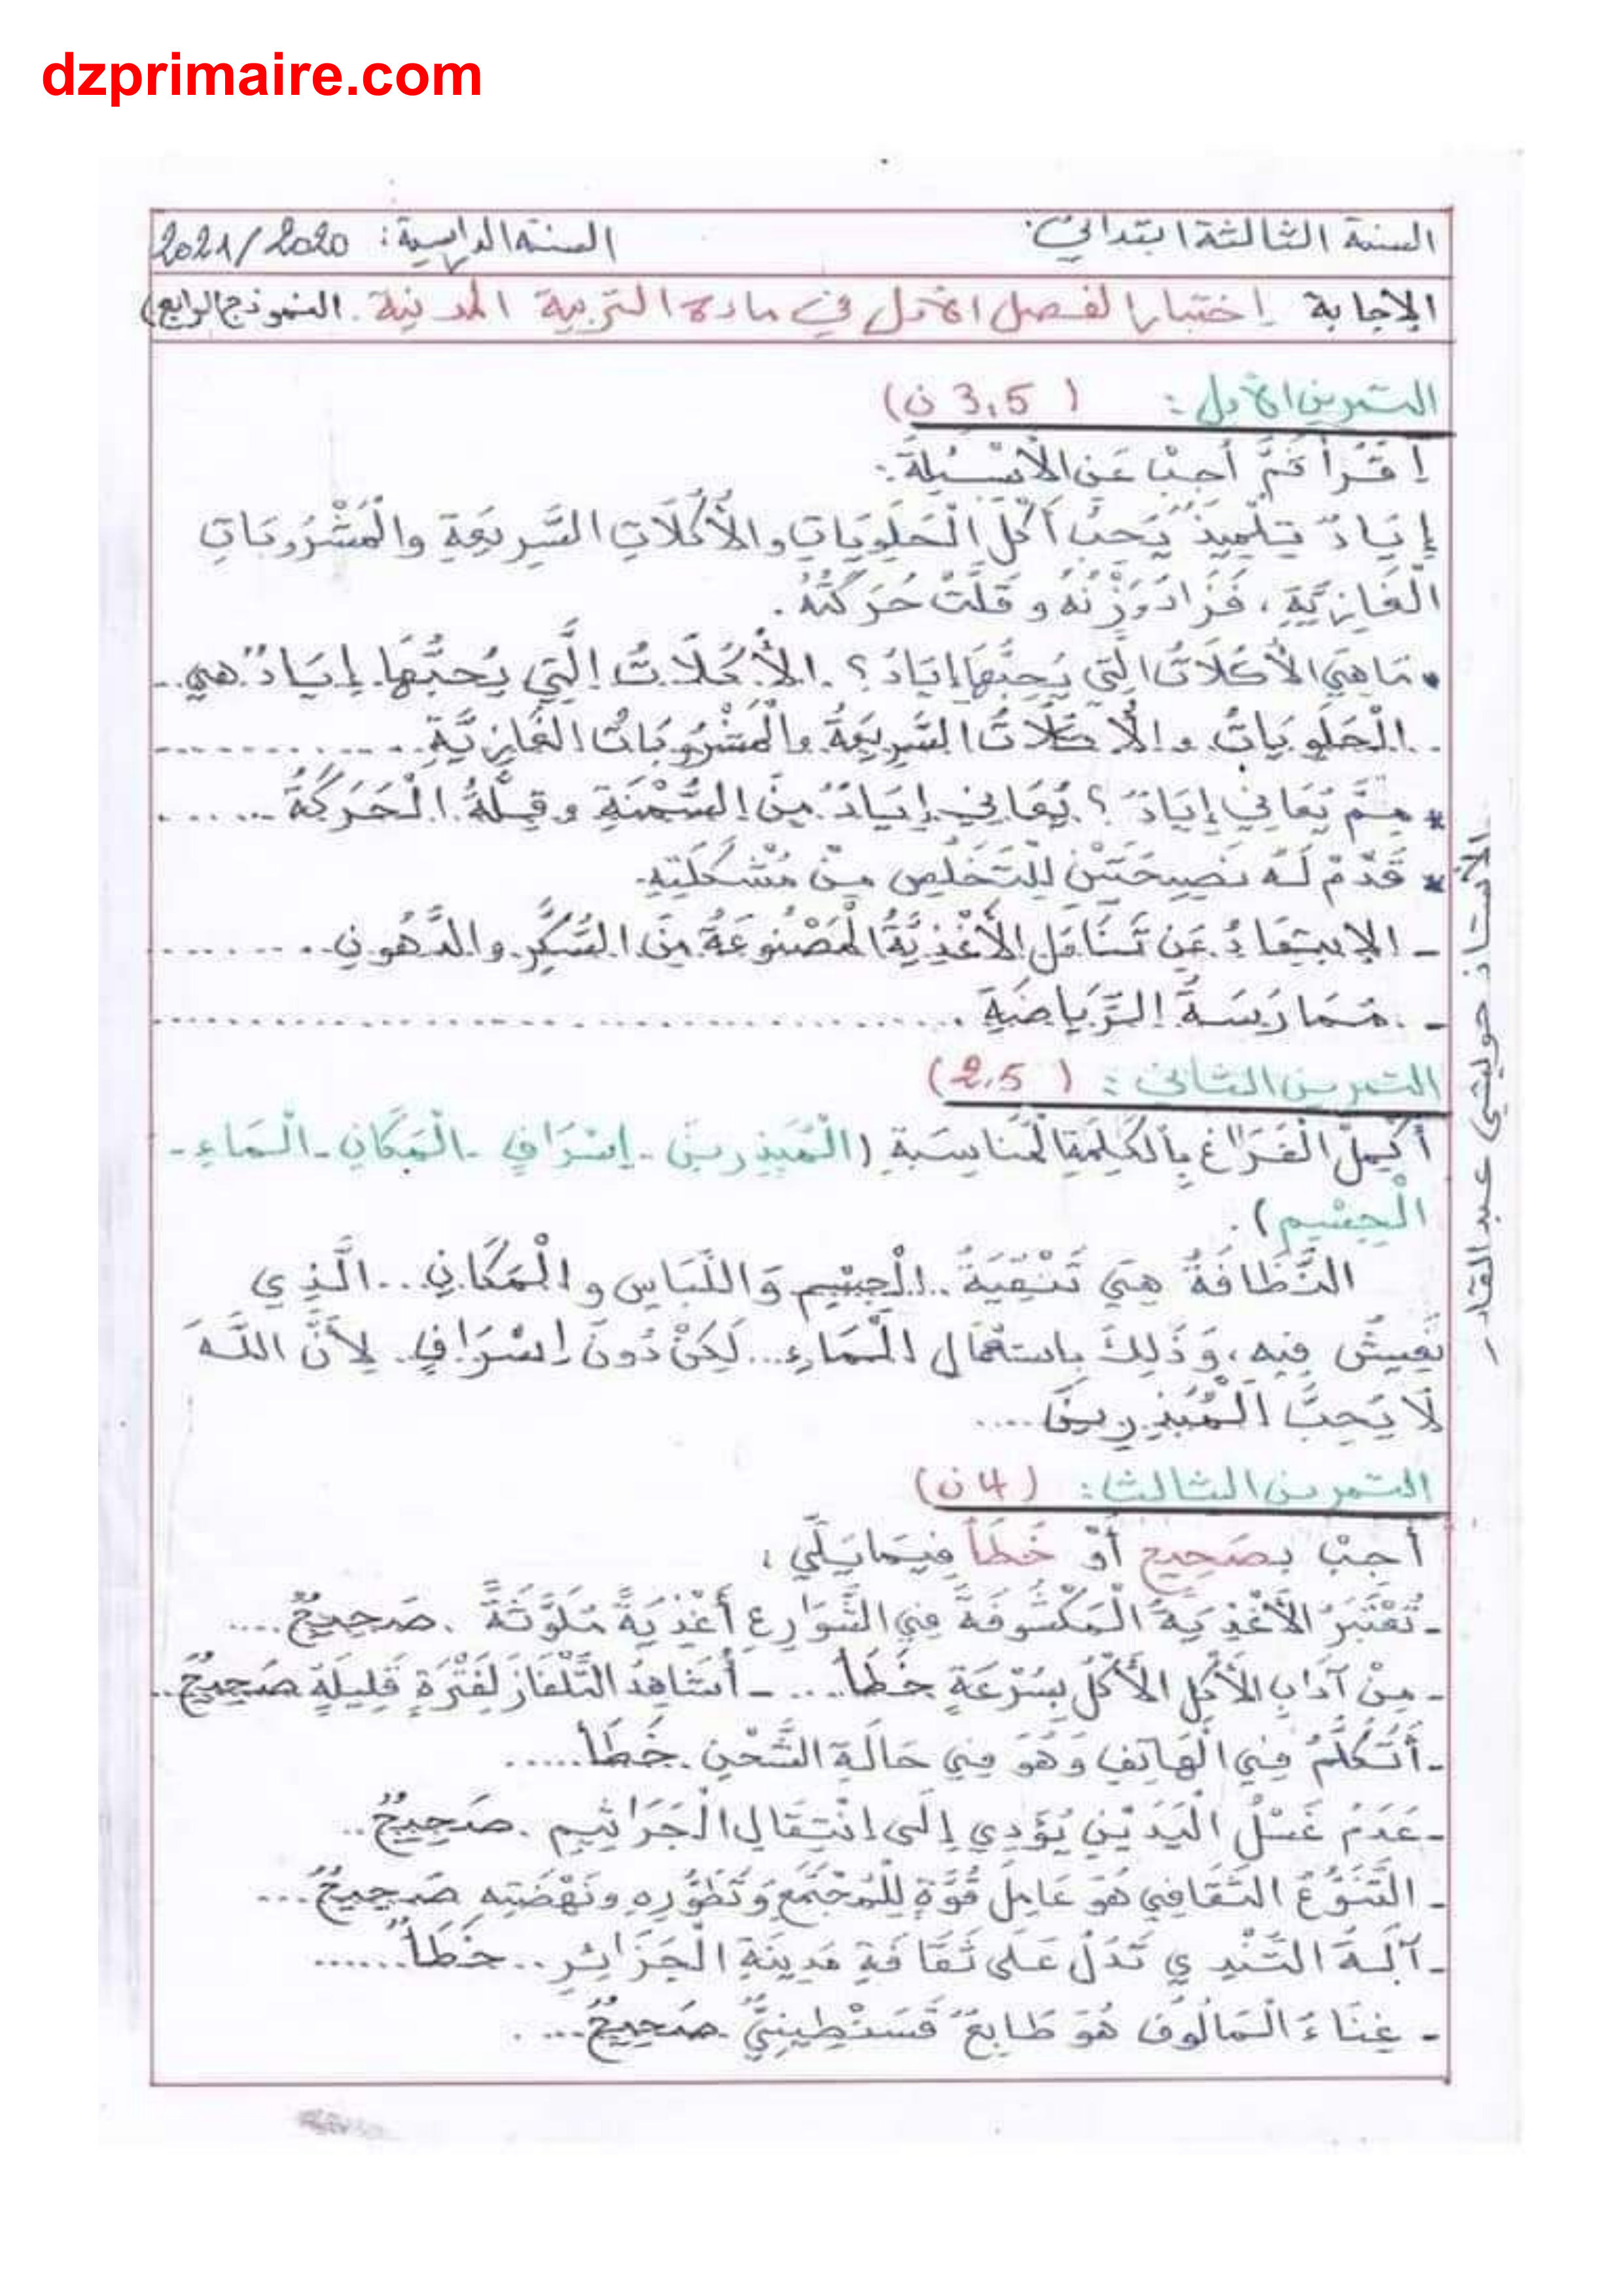 dzprimaire.com
السنة الثالثة ابتدائي. السنة الدراسية: 2021/2020
الإجابة إختبار الفصل الأول في مادة التربية المدنية. النموذج الرابع)
التمرين الأول: (3,5 ن)
إقْرَأْ ثُمَّ أَجِبْ عَنِ الْأَسْئِلَةِ:
إِيَادٌ تِلْمِيذٌ يُحِبُّ أَكْلَ الْحَلَوِيَاتِ وَالْأُكُلَاتِ السَّرِيعَةِ وَالْمَشْرُوبَاتِ
الْغَازِيَّةِ، فَزَادَ وَزْنُهُ وَ قَلَّتْ حَرَكَتُهُ.
• مَا هِيَ الْأَكَلَاتُ الَّتِي يُحِبُّهَا إِيَادُ؟ . الْأُكُلَاتُ الَّتِي يُحِبُّهَا إِيَادٌ هي..
. الْحَلَوِيَاتُ وَ الْأُكُلَاتُ السَّرِيعَةُ وَالْمَشْرُوبَاتُ الْغَازِيَّةِ...........
* مِمَّ يُعَانِي إِيَادٌ؟ يُعَانِي إِيَادٌ مِنَ السُّمْنَةِ وَ قِلَّةُ الْحَرَكَةُ......
* قَدِّمْ لَهُ نَصِيحَتَيْنِ لِلتَّخَلُّصِ مِنْ مُشْكِلَتِهِ.
- الإبتِعَادُ عَنِ تَنَاوُلِ الْأَغْذِيَّةُ الْمَصْنُوعَةُ مِنَ السُّكَّرِ وَالدُّهُونِ........
- . مُمَارَسَةُ الرِّيَاضَةِ ......................................
التمرين الثاني: (2,5)
أَكْمِلُ الْفَرَاغَ بِالْكَلِمَةِ الْمُنَاسِبَةِ (الْمُبَذِرِينَ - إِسْرَافٍ - الْمَكَانِ - الْمَاءِ -
الْجِسْمِ).
النَّظَافَةُ هِيَ تَنْقِيَةُ .. الْجِسْمِ وَاللِّبَاسِ وَ الْمَكَانِ... الَّذِي
نَعِيشُ فِيهِ، وَذَلِكَ بِاسْتِعْمَالِ الْمَاءِ... لَكِنْ دُونَ إِسْرَافٍ. لِأَنَّ اللَّهَ
لَا يُحِبُّ الْمُبَذِرِينَ....
التمرين الثالث: (4 ن)
أَجِبْ بِصَحِيحٍ أَوْ خَطَأ فِيمَا يَلِي:
- تُعْتَبَرُ الْأَغْذِيَةُ الْمَكْشُوفَةُ فِي الشَّوَارِعِ أَغْذِيَةً مُلَوَّثَةً . صَحِيحٌ....
- مِنْ آدَابِ الْأَكْلِ الْأَكْلُ بِسُرْعَةٍ خَطَأ.... - أُشَاهِدُ التِّلْفَازَ لِفَتْرَةٍ قَلِيلَةٍ صَحِيحٌ..
- أَتَكَلَّمُ فِي الْهَاتِفِ وَهُوَ فِي حَالَةِ الشَّحْنِ . خَطَأ......
- عَدَمُ غَسْلُ الْيَدَيْنِ يُؤَدِي إِلَى انْتِقَالِ الْجَرَاثِيمِ . صَحِيحٌ..
- التَّنَوُّعُ الثَّقَافِي هُوَ عَامِلُ قُوَّةٍ لِلْمُجْتَمَعِ وَتَطَوُّرِهِ وَنَهْضَتِهِ صَحِيحٌ...
- آلَةُ التِّنْدِي تَدُلُّ عَلَى ثَقَافَةِ مَدِينَةِ الْجَزَائِرِ .. خَطَأٌ......
- غِنَاءُ الْمَالُوفِ هُوَ طَابِعٌ قَسَنْطِينِيٌّ . صَحِيحٌ....
الأستاذ حويشي عبد القادر